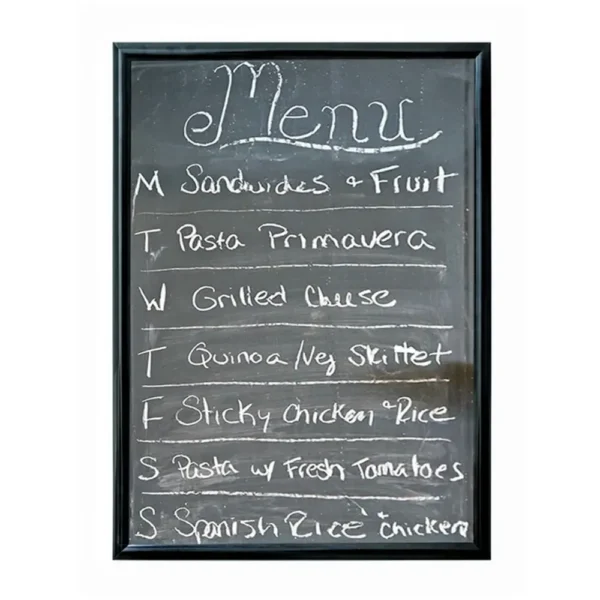 Menu
M Sandwiches & Fruit
T Pasta Primavera
W Grilled Cheese
T Quinoa/Veg Skillet
F Sticky Chicken & Rice
S Pasta w/ Fresh Tomatoes
S Spanish Rice & Chicken